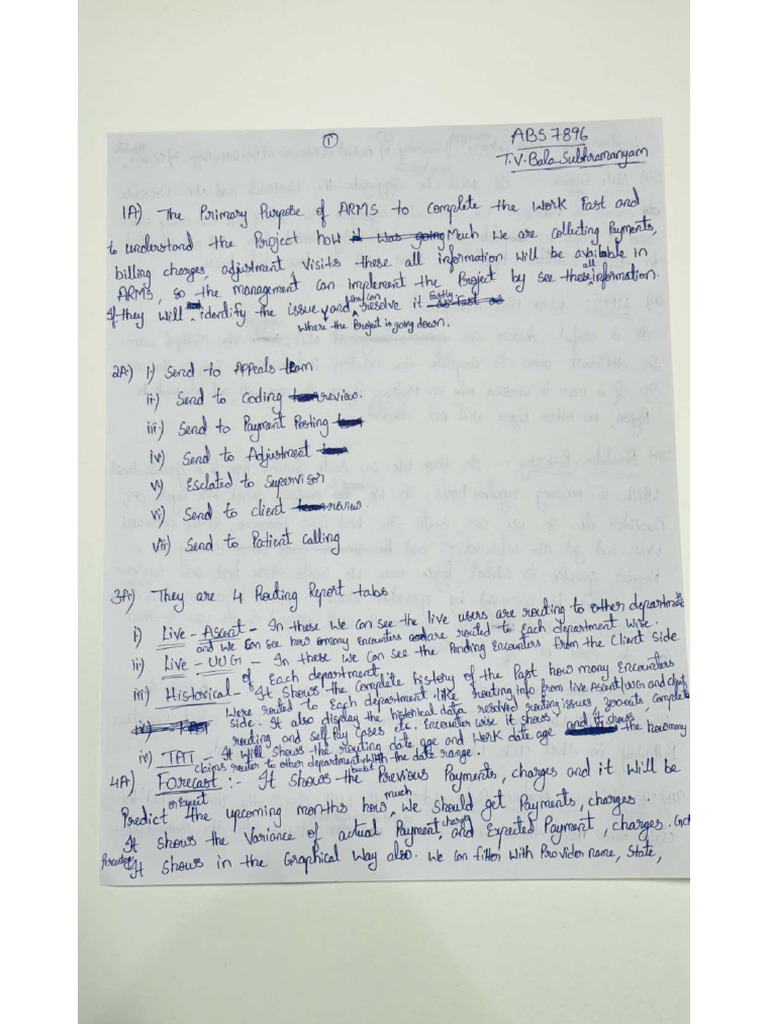 ①
ABS7896
T.V. Bala Subhramanyam
1A) The Primary Purpose of ARMS to Complete the Work Fast and
to understand the Project how it was going Much We are collecting Payments,
billing charges, adjustment, Visits these all information will be available in
ARMS, so the management can implement the Project by see these all information.
If they will identify the issue and they can resolve it Fastly as fast as
Where the Project is going down.
2A) i) Send to Appeals team
ii) Send to Coding review.
iii) Send to Payment Posting
iv) Send to Adjustment
v) Esclated to Supervisor
vi) Send to client review.
vii) Send to Patient Calling
3A) They are 4 Routing Report tabs.
i) Live - Ascent - In these We can see the live users are routing to other departments
and We can see how many Encounters are routed to Each department Wise.
ii) Live - UWG - In these We can See the Pending Encounters from the Client Side
of Each department.
iii) Historical - It Shows the Complete history of the Past how many Encounters
Were routed to Each department. like routing info from live Ascent/UWG and client
side. It also display the historical data resolved routing issues, zero cats complete
routing and Self Pay Cases etc. Encounter wise it shows
iv) TAT - It Will shows the routing date age and Work date age and it shows the how many
claims router to other department With the date range.
bucket
4A) Forecast :- It Shows the Previous Payments, charges and it will be
Predict or Expect the upcoming months how much We should get Payments, charges.
It shows the Variance of actual Payment, charges and Expected Payment, charges.
It Shows in the Graphical Way also. We can filter With Provider name, State,